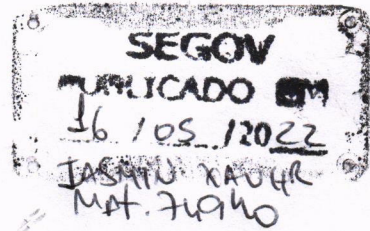 SEGOV
PUBLICADO EM
16 / 05 / 2022
JASMIN XAVIER
MAT. 74940